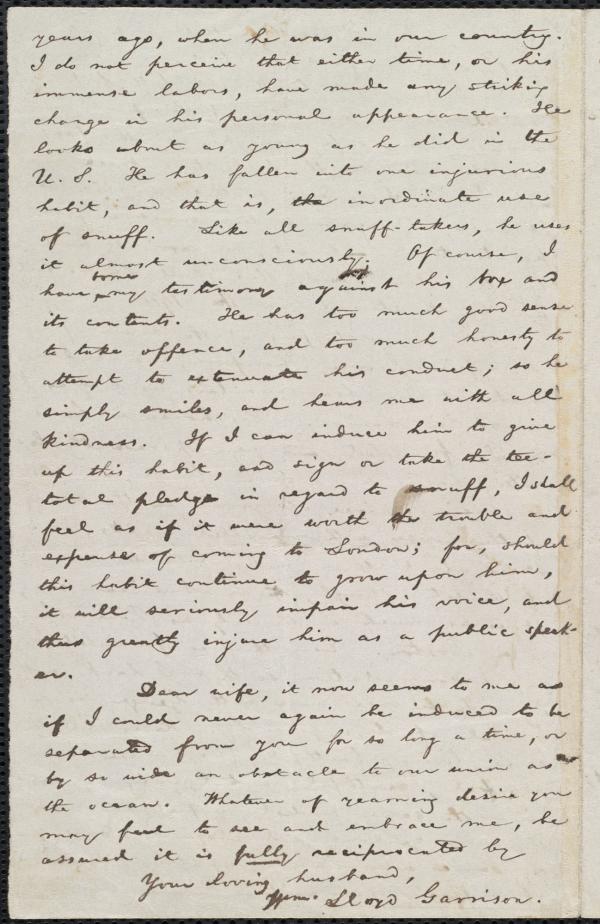 years ago, when he was in our country.
I do not perceive that either time, or his
immense labors, have made any striking
change in his personal appearance. He
looks about as young as he did in the
U. S. He has fallen into one injurious
habit, and that is, the inordinate use
of snuff. Like all snuff-takers, he uses
it almost unconsciously. Of course, I
have borne my testimony against his box and
its contents. He has too much good sense
to take offence, and too much honesty to
attempt to extenuate his conduct; so he
simply smiles, and hears me with all
kindness. If I can induce him to give
up this habit, and sign or take the tee-
total pledge in regard to snuff, I shall
feel as if it were worth the trouble and
expense of coming to London; for, should
this habit continue to grow upon him,
it will seriously impair his voice, and
thus greatly injure him as a public speak-
er.
Dear wife, it now seems to me as
if I could never again be induced to be
separated from you for so long a time, or
by so wide an obstacle to our union as
the ocean. Whatever of yearning desire you
may feel to see and embrace me, be
assured it is fully reciprocated by
Your loving husband,
Wm. Lloyd Garrison.